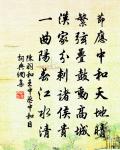 節應中和天地晴
繁弦疊鼓動高城
漢家分刺諸侯貴
一曲陽春江水清
陳羽和王中丞中和日
詞典網集